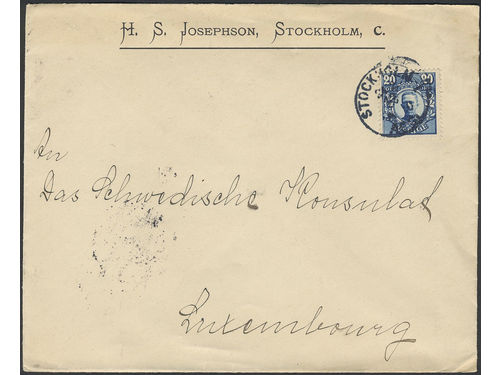 H. S. JOSEPHSON, STOCKHOLM, C.
STOCKHOLM
20 20
An
Das Schwedische Konsulat
Luxembourg